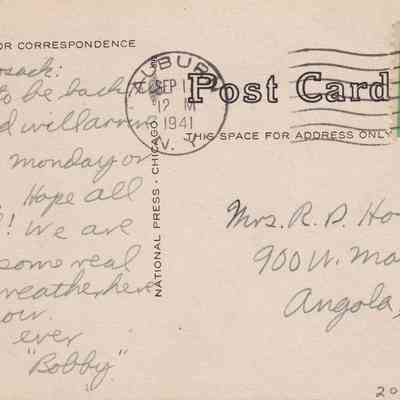 OR CORRESPONDENCE
AUBURN
SEP 1
12 M
1941
N. Y.
Post Card
THIS SPACE FOR ADDRESS ONLY
NATIONAL PRESS - CHICAGO
to be back
d will arrive
monday or
. Hope all
! We are
some real
weather here
ow.
ever
"Bobby"
Mrs. R. D. Ho
900 W. Ma
Angola,
20